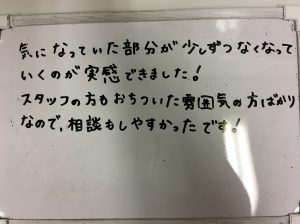 気になっていた部分が少しずつなくなって
いくのが実感できました!
スタッフの方もおちついた雰囲気の方ばかり
なので、相談もしやすかったです!